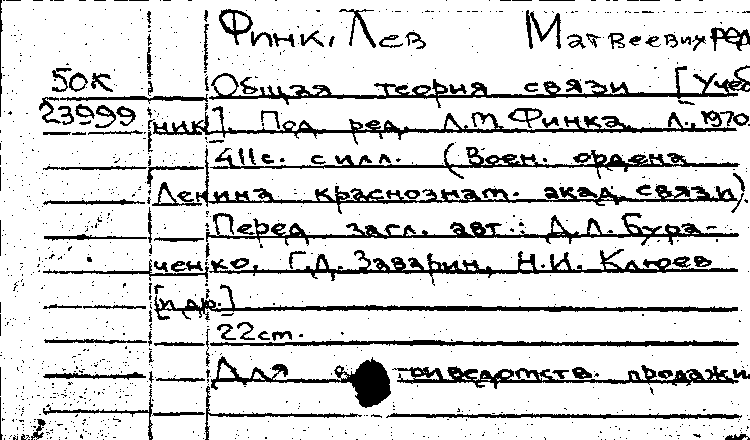 Финк, Лев Матвеевич ред
50К Общая теория связи [Учеб
23999 ник]. Под ред. Л.М. Финка. Л., 1970.
411с. с илл. (Воен. ордена
Ленина краснознам. акад. связи).
Перед загл. авт.: Д.Л. Бура-
ченко, Г.Д. Заварин, Н.И. Клюев
[и др.]
22см.
Для продажи